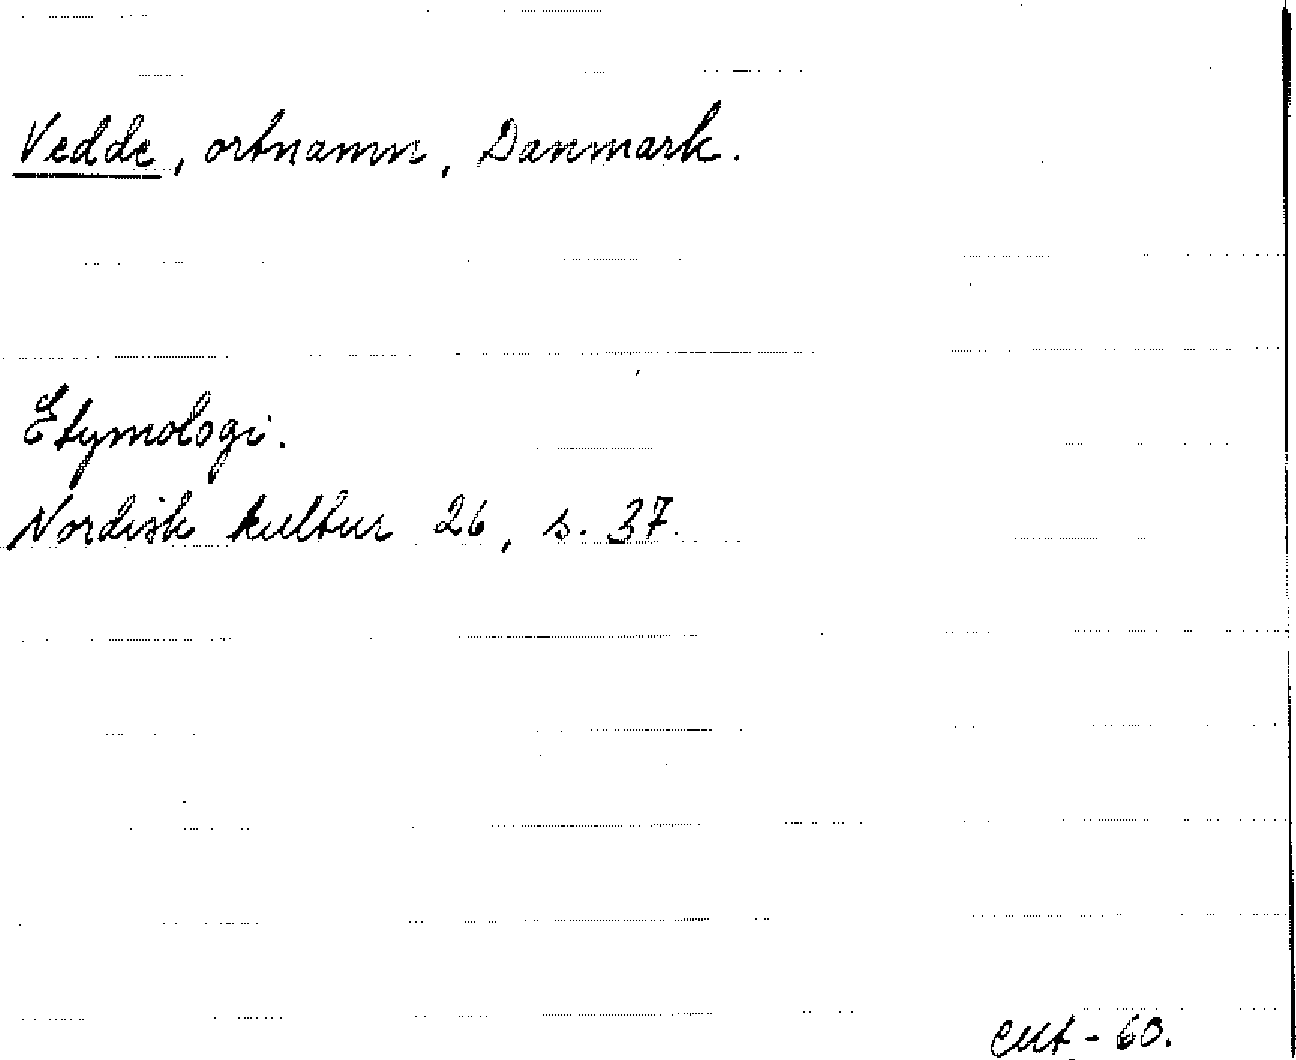 Vedde, ortnamn, Danmark.
Etymologi.
Nordisk kultur 26, s. 37.
-60.